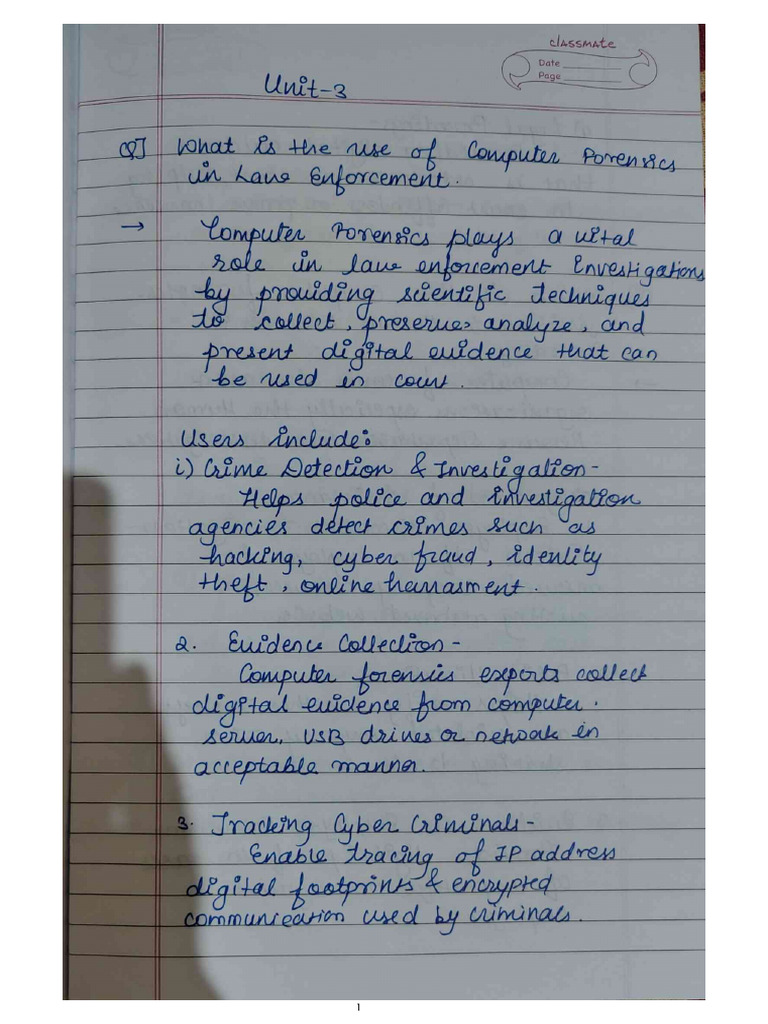 classmate
Date
Page
Unit-3
Q] What is the use of Computer Forensics
in Law Enforcement.
→ Computer Forensics plays a vital
role in law enforcement investigations
by providing scientific techniques
to collect, preserve, analyze, and
present digital evidence that can
be used in court.
Users include:
i) Crime Detection & Investigation-
Helps police and investigation
agencies detect crimes such as
hacking, cyber fraud, identity
theft, online harrasment.
2. Evidence Collection-
Computer forensics experts collect
digital evidence from computer.
server, USB drives or network in
acceptable manner.
3. Tracking Cyber Criminals-
Enable tracing of IP address
digital footprints & encrypted
communication used by criminals.
1